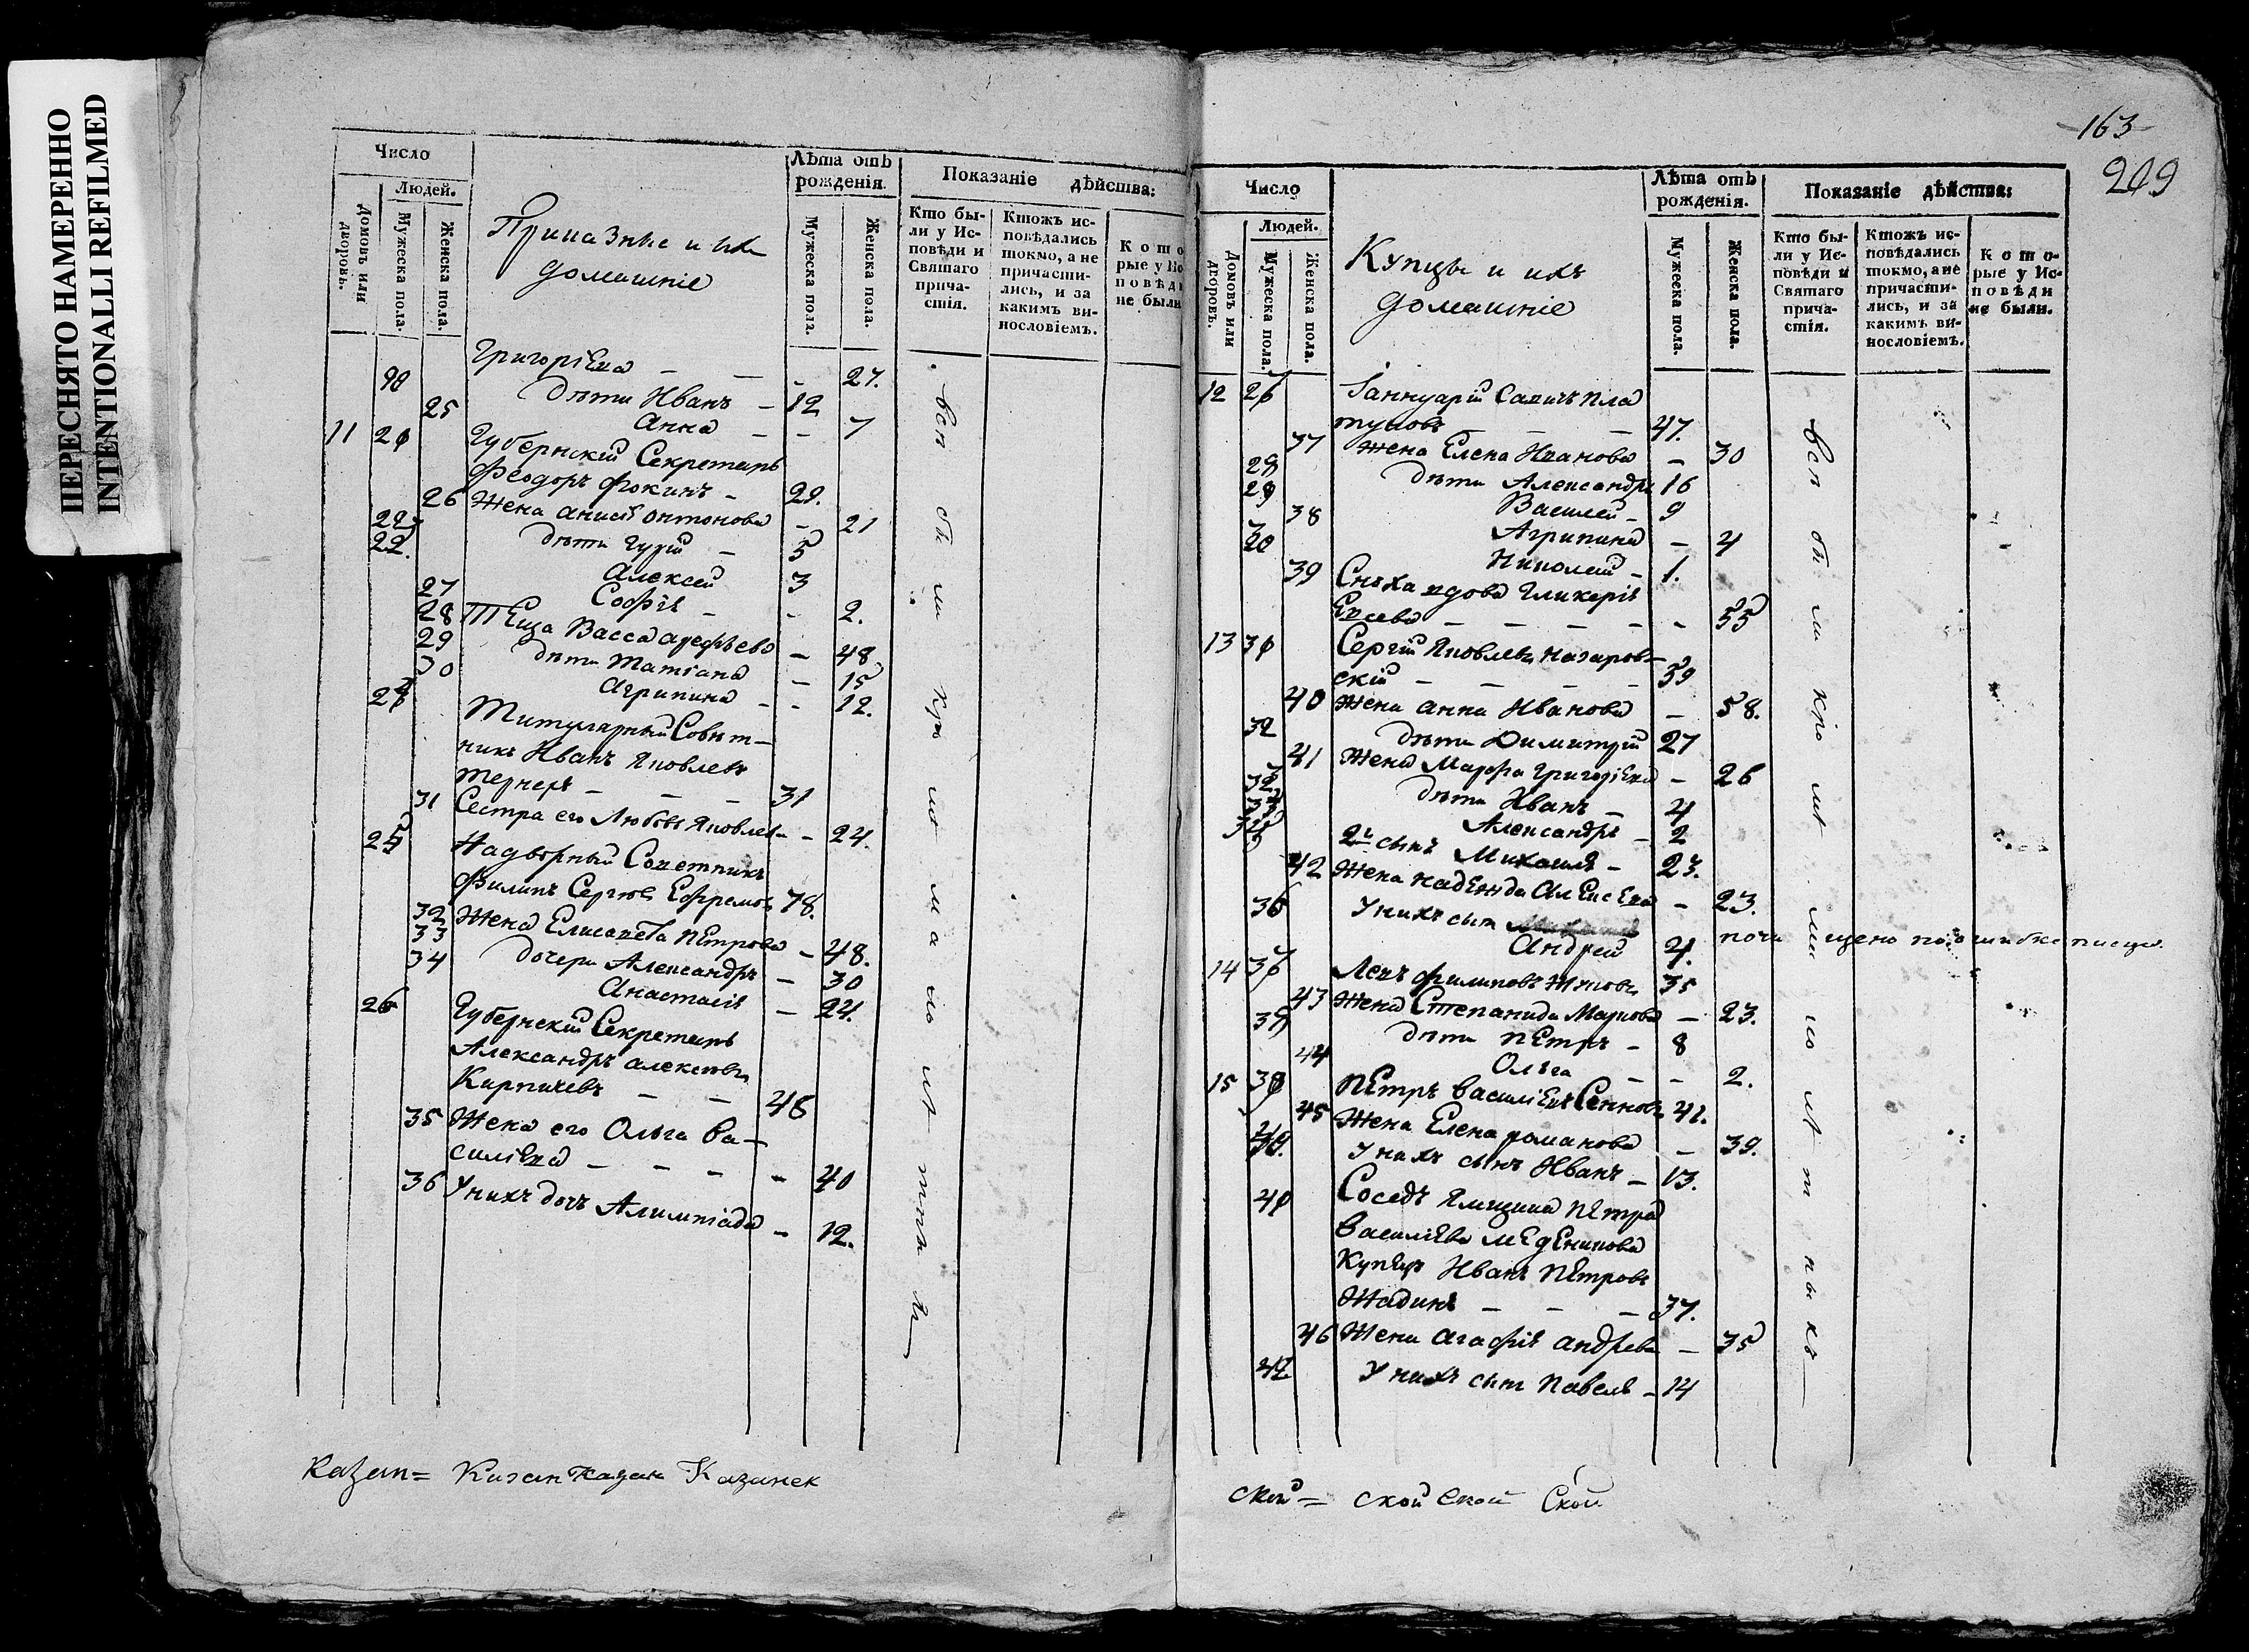 ПЕРЕСНЯТО НАМЕРЕННО
INTENTIONALLI REFILMED
Число
Людей.
Домовъ или дворовъ.
Мужеска пола.
Женска пола.
Приказные и их
домашніе
Лѣта отъ рожденія.
Мужеска пола.
Женска пола.
Показаніе дѣйства:
Кто бы-
ли у Ис-
повѣди и
Святаго
прича-
стія.
Ктожъ ис-
повѣдались
токмо, а не
причасти-
лись, и за
какимъ ви-
нословіемъ.
Кото
рые у Ис
повѣди
не были
Григоріева — — 27.
Дѣти Иванъ — 12
25 Анна — — 7
11 Губернский Секретарь
Феодоръ Фокинъ — 29.
26 Жена Анисія Онтонова — 21
Дѣти Гурій — 5
Алексей 3
27 Софія — — 2.
28 Теща Васса Арефьева — 48
29 Дѣти Татіана — 15
30 Агрипина — — 12.
Титулярный Совѣт-
никъ Иванъ Яковлевъ
Тернеръ — — — 31
31 Сестра его Любовь Яковлева — 24.
25 Надворный Советникъ
Филипъ Сергѣевъ Ефремовъ 78.
32 Жена Елисавета Петрова — 48.
33 Дочери Александра — 30
34 Анастасія — 24.
26 Губернский Секретарь
Александръ Алексѣевъ
Кирпичевъ — — 46
35 Жена его Ольга Ва-
силіева — — — — 40
36 У нихъ дочь Алимпіада — 12.
Казан= Казан Казан Казанск
163
209
Число
Людей.
Домовъ или дворовъ.
Мужеска пола.
Женска пола.
Купцы и ихъ
домашніе
Лѣта отъ рожденія.
Мужеска пола.
Женска пола.
Показаніе дѣйства:
Кто бы-
ли у Ис-
повѣди и
Святаго
прича-
стія.
Ктожъ ис-
повѣдались
токмо, а не
причасти-
лись, и за
какимъ ви-
нословіемъ.
Кото-
рые у Ис-
повѣди
не были.
12 Іаннуарій Савичъ Пла
туновъ — — — 47.
37 Жена Елена Иванова — 30
28 Дѣти Александръ 16
29 Василей — 9
38 Агрипина — 4
Николай — 1.
39 Сноха вдова Гликерія
Евсева — — — — — 55
13 Сергій Яковлевъ Назаров-
скій — — — — 59
40 Жена Анна Иванова — 58.
32 Дѣти Димитрій 27
41 Жена Марфа Григоріева — 26
Дѣти Иванъ — 4
Александръ — 2
2й сынъ Михаилъ — 23.
42 Жена Надежда Алексеева — 23.
36 У нихъ сын
Андрей 4. почищено по ошибке писца.
14 Левъ Филиповъ 35
43 Жена Степанида Маркова — 23.
Дѣти Петръ — 8
44 Ольга — — 2.
15 Петръ Василіевъ 42.
45 Жена Елена Романова — 39.
У нихъ сынъ Иванъ — 13.
Соседъ Ямщика Петра
Василіева Меденикова
Купецъ Иванъ Петровъ
Жадинъ — — — 37.
46 Жена Агафія Андрева — 35
42. У нихъ сын Павелъ — 14
ской= ской ской Ской